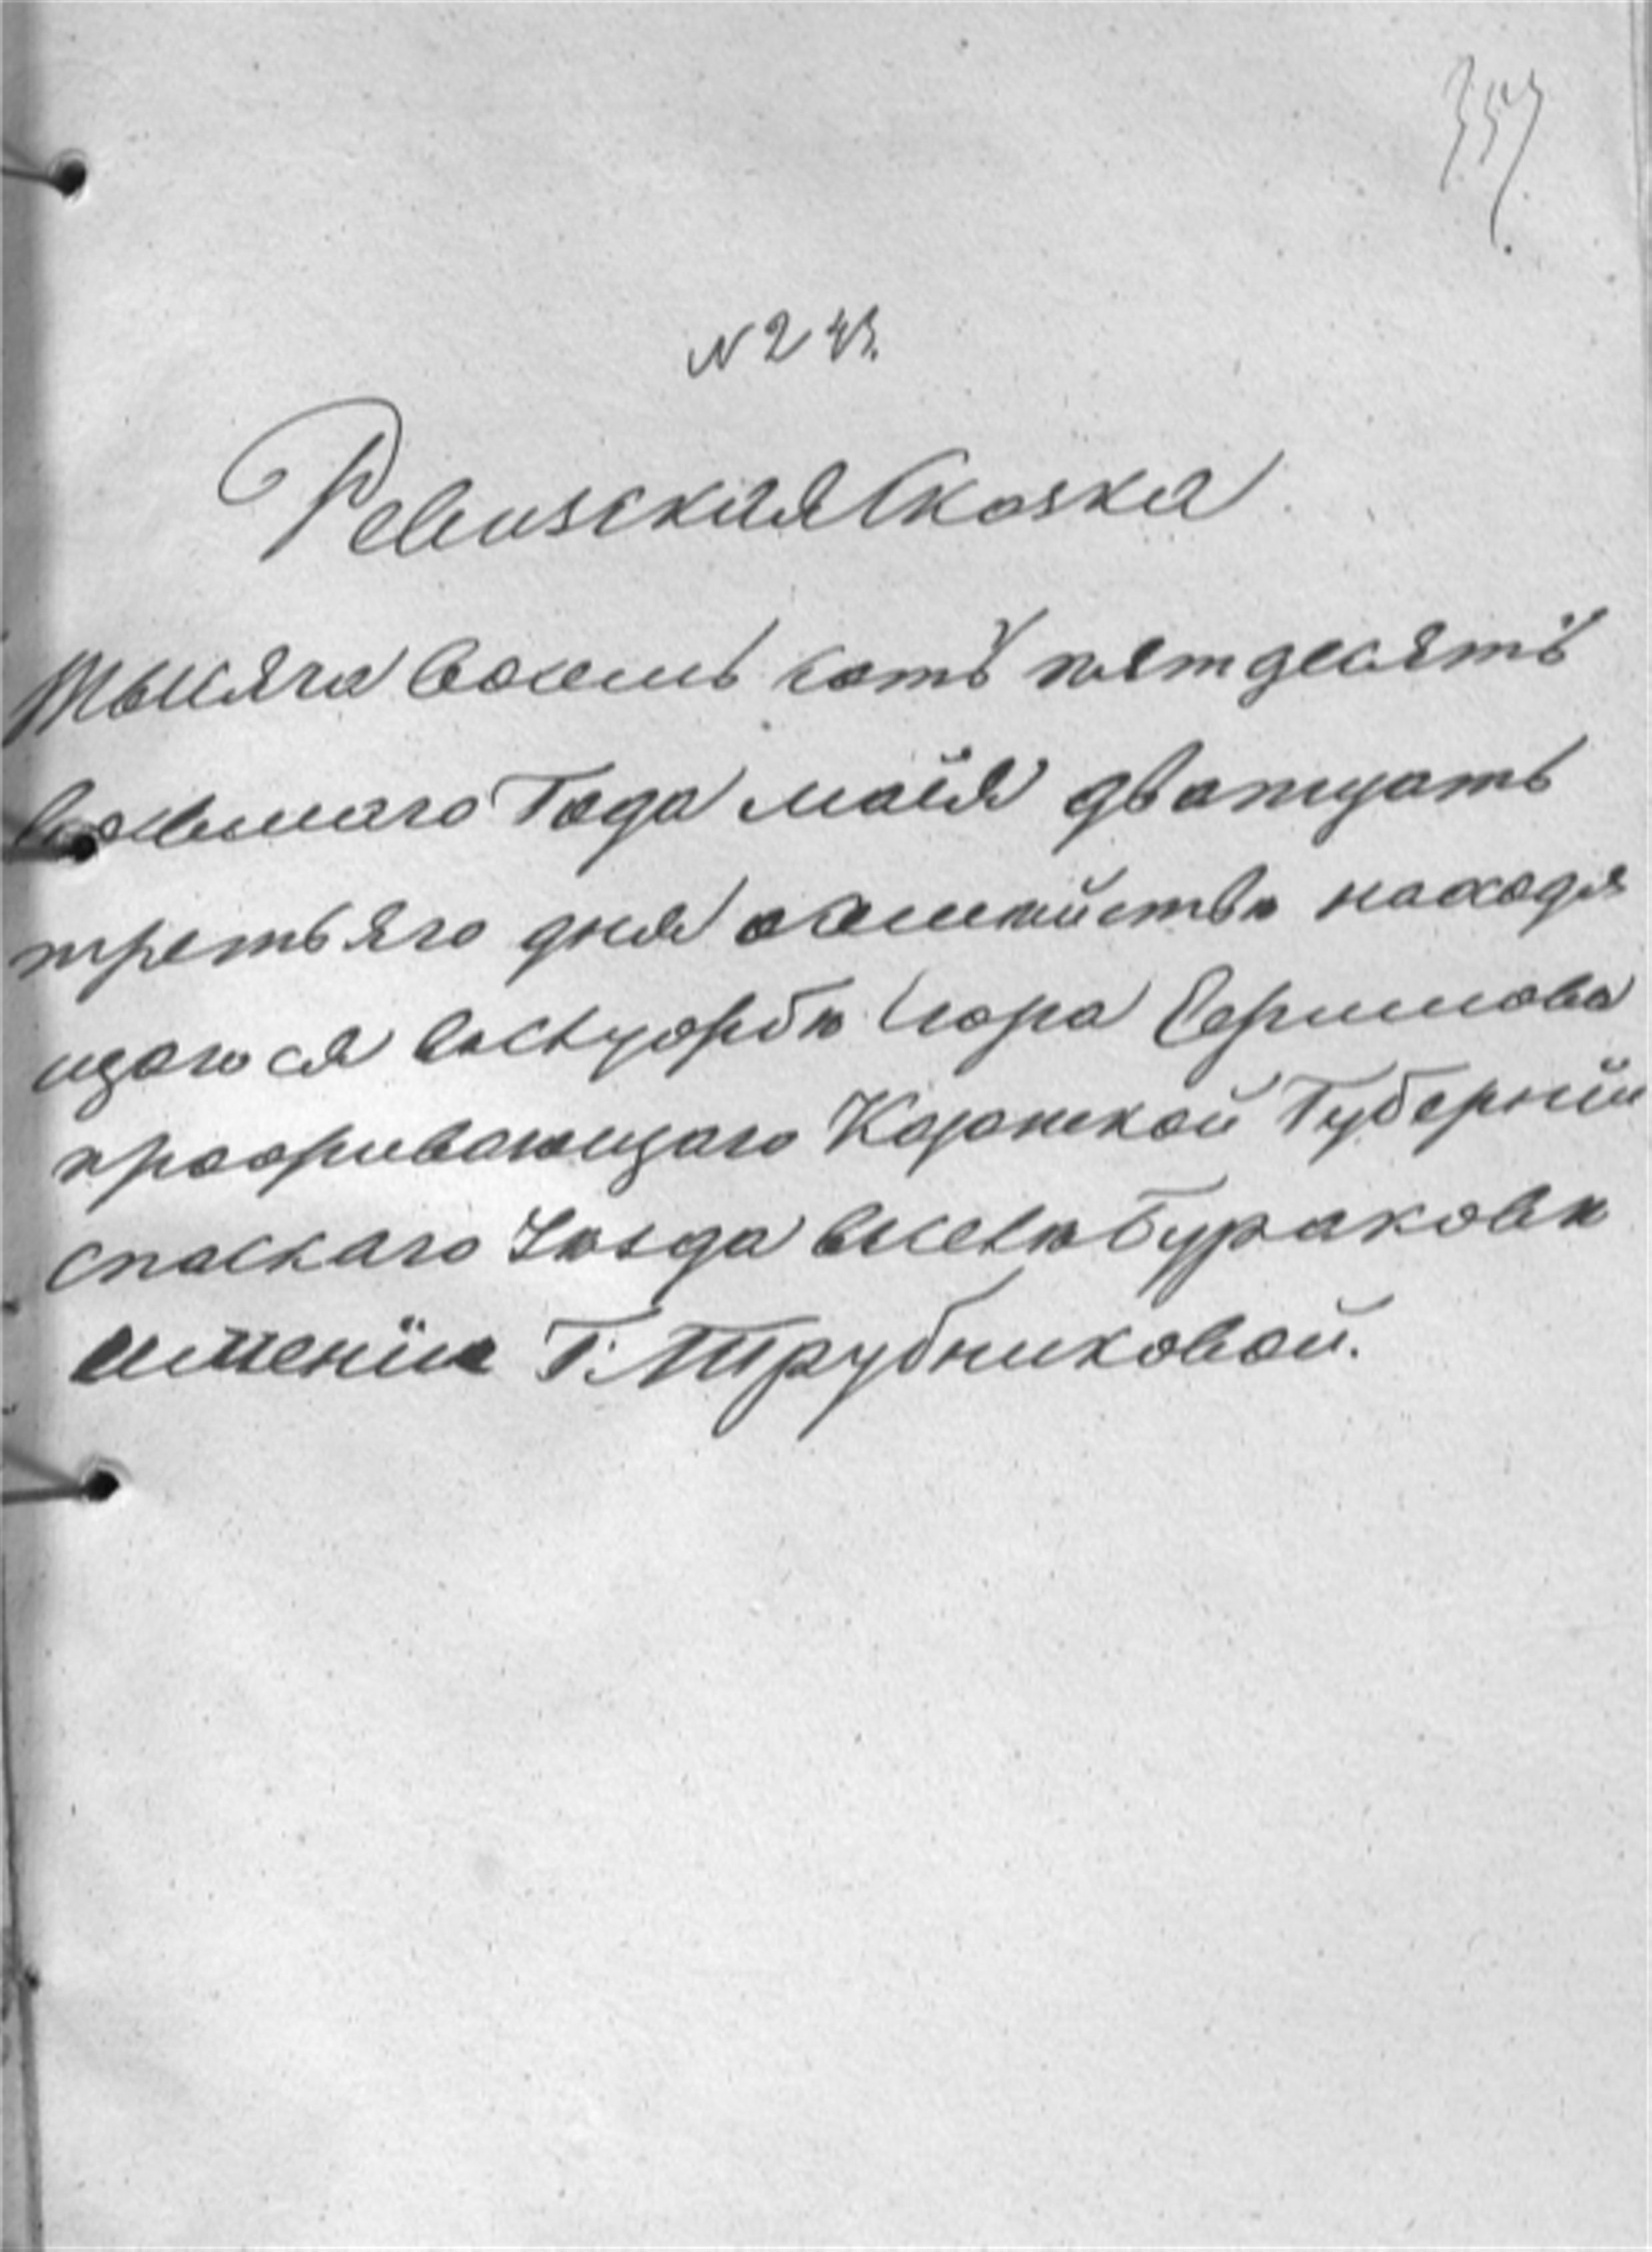 357.
N 243.
Ревизская Сказка
Тысяча восемь сотъ пятдесятъ
восьмаго Года маія дватцать
третьяго дня осемъйствѣ находя
щагося
проживающаго Казанской Губерніи
спаскаго Уѣзда всельѣ Бураковѣ
имѣніи Г. Трубниковой.